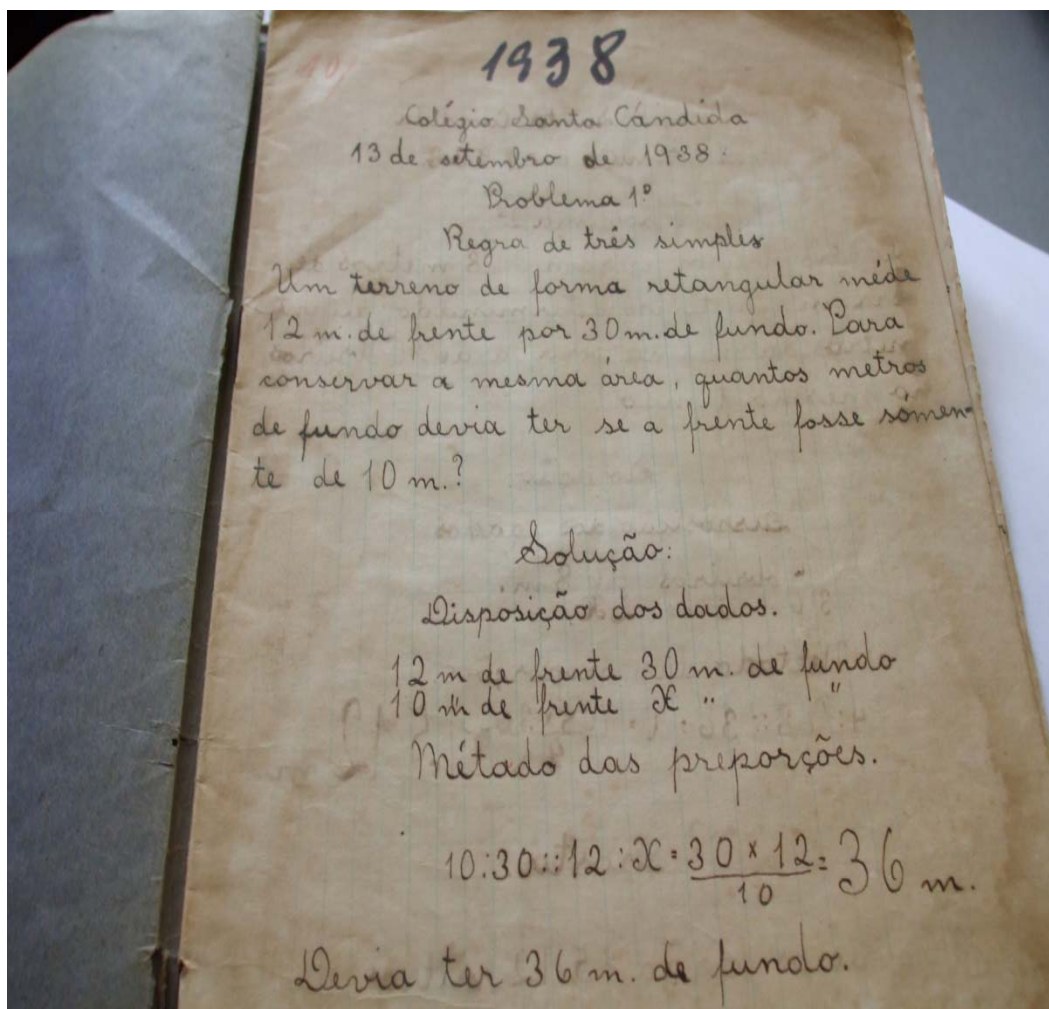 1938
Colégio Santa Cándida
13 de setembro de 1938.
Problema 1º
Regra de três simples
Um terreno de forma retangular méde
12 m. de frente por 30 m. de fundo. Para
conservar a mesma área, quantos metros
de fundo devia ter se a frente fosse sómen-
te de 10 m.?
Solução:
Disposição dos dados.
12 m de frente 30 m. de fundo
10 m de frente X " "
Métado das preporções.
10:30::12:X = 30 x 12 = 36 m.
10
Devia ter 36 m. de fundo.